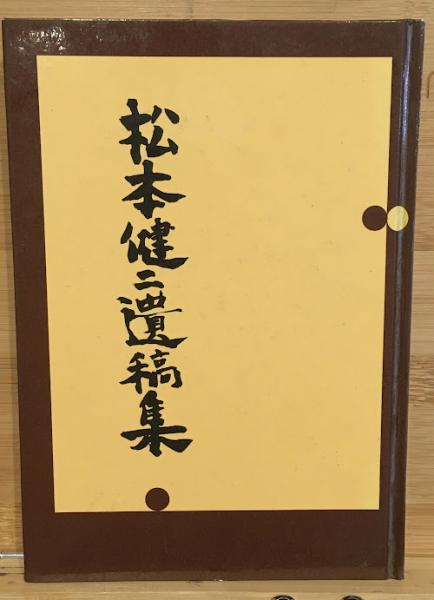 松本健二遺稿集